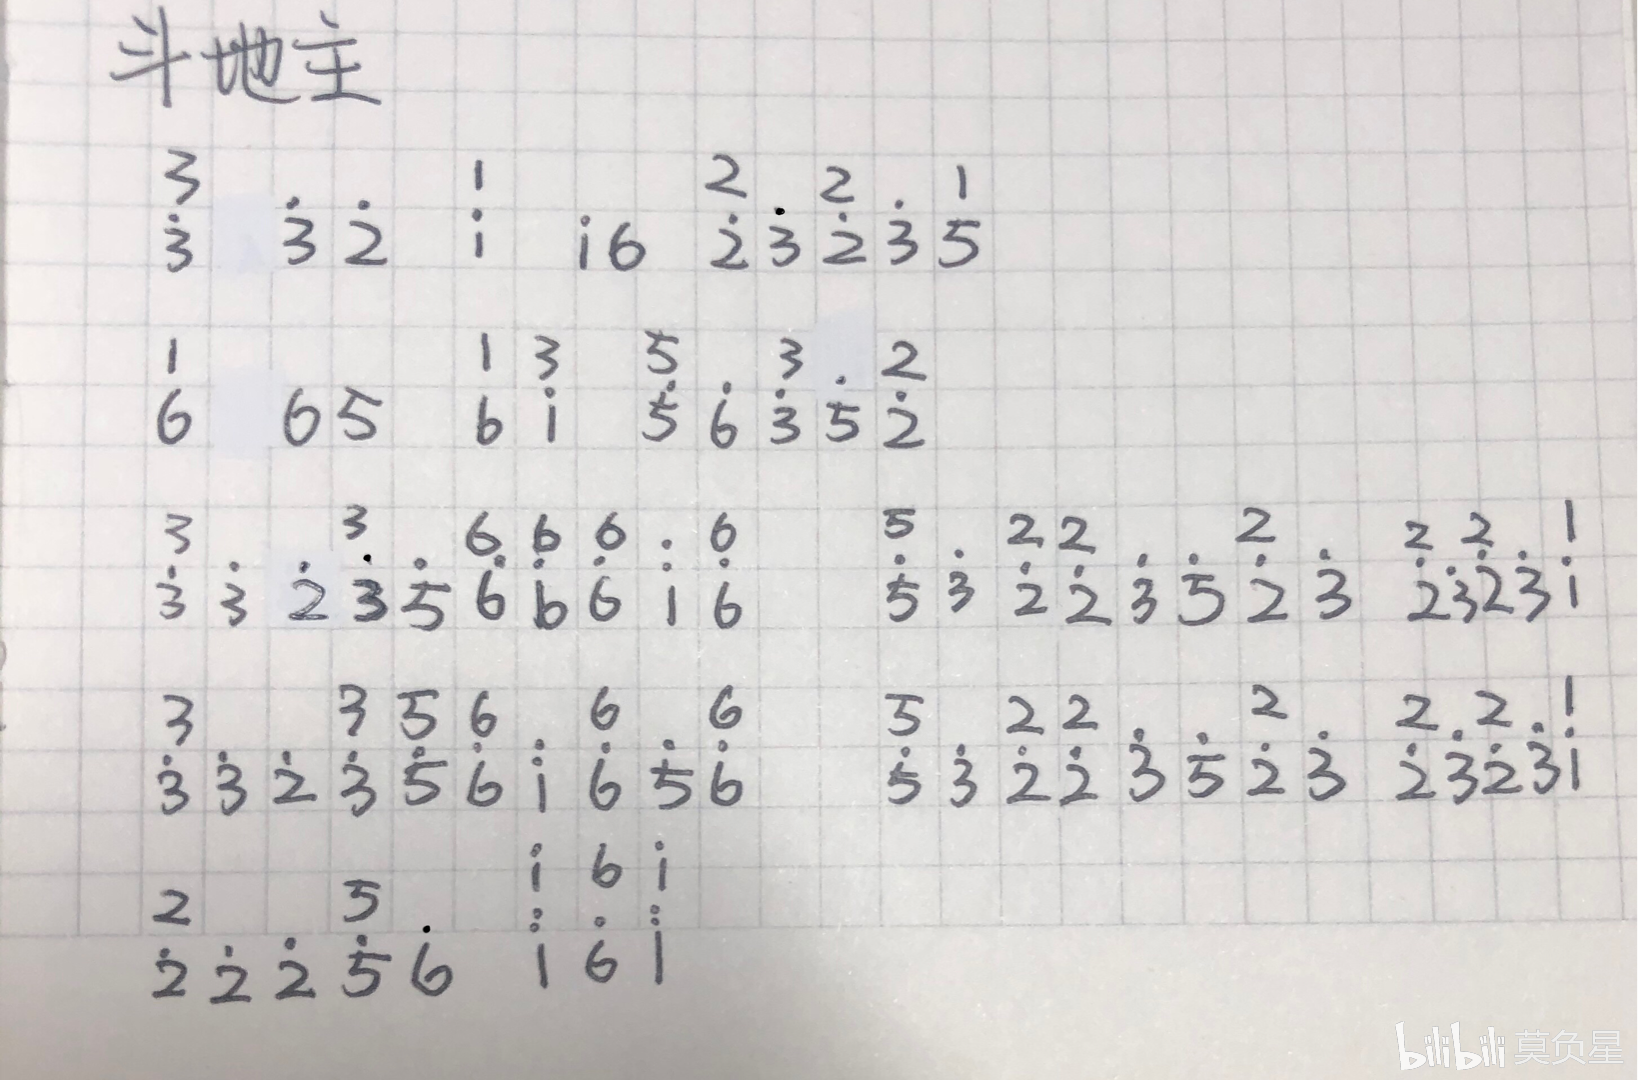 斗地主
3 1 2 2 1
3̇ 3̇ 2̇ 1̇ 1̇ 6 2̇ 3̇ 2̇ 3̇ 5
1 1 3 5 3 2
6 6 5 6 1̇ 5̇ 6̇ 3̇ 5̇ 2̇
3 3 6 6 6 6 5 2 2 2 2 2 1
3̇ 3̇ 2̇ 3̇ 5̇ 6̇ 6̇ 6̇ 1̈ 6̇ 5̇ 3̇ 2̇ 2̇ 3̇ 5̇ 2̇ 3̇ 2̇ 3̇ 2̇ 3̇ 1̇
3 3 5 6 6 6 5 2 2 2 2 2 1
3̇ 3̇ 2̇ 3̇ 5̇ 6̇ 1̈ 6̇ 5̇ 6̇ 5̇ 3̇ 2̇ 2̇ 3̇ 5̇ 2̇ 3̇ 2̇ 3̇ 2̇ 3̇ 1̇
2 5 1̇ 6 1̇
2̇ 2̇ 2̇ 5̇ 6̇ 1̈ 6̇ 1̈
bilibili 莫负星